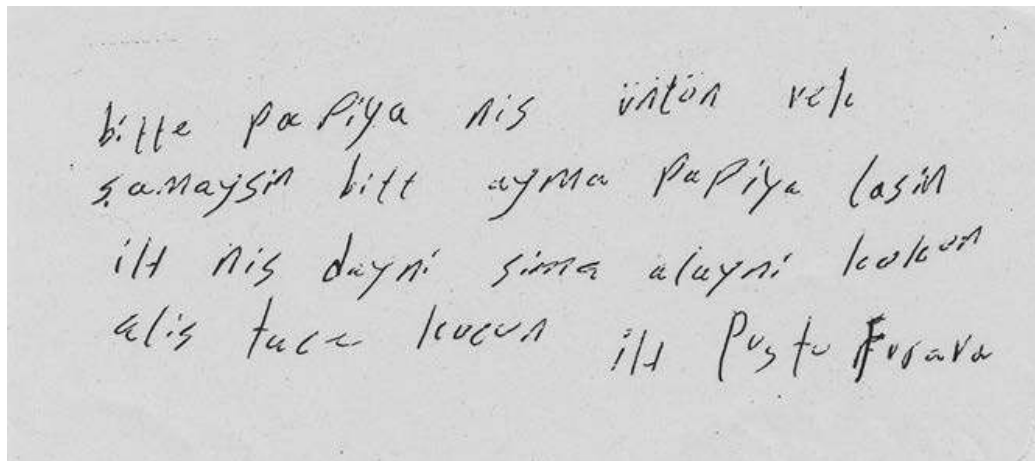 bitte papiya nis üntön vek
şamaysin bitt ayma papiya lasin
ilt nis dayni sima alayni kokon
alis taca kucun ilt Pustu Furava